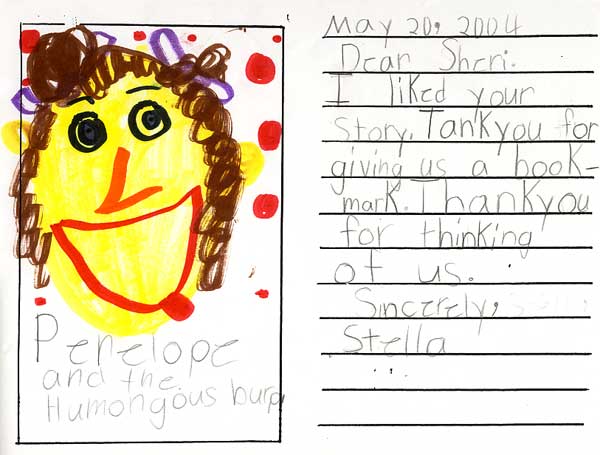 Penelope
and the
Humongous burp
May 20, 2004
Dear Sheri.
I liked your
Story. Tankyou for
giving us a book-
mark. Thankyou
for thinking
of us.
Sincerely,
Stella